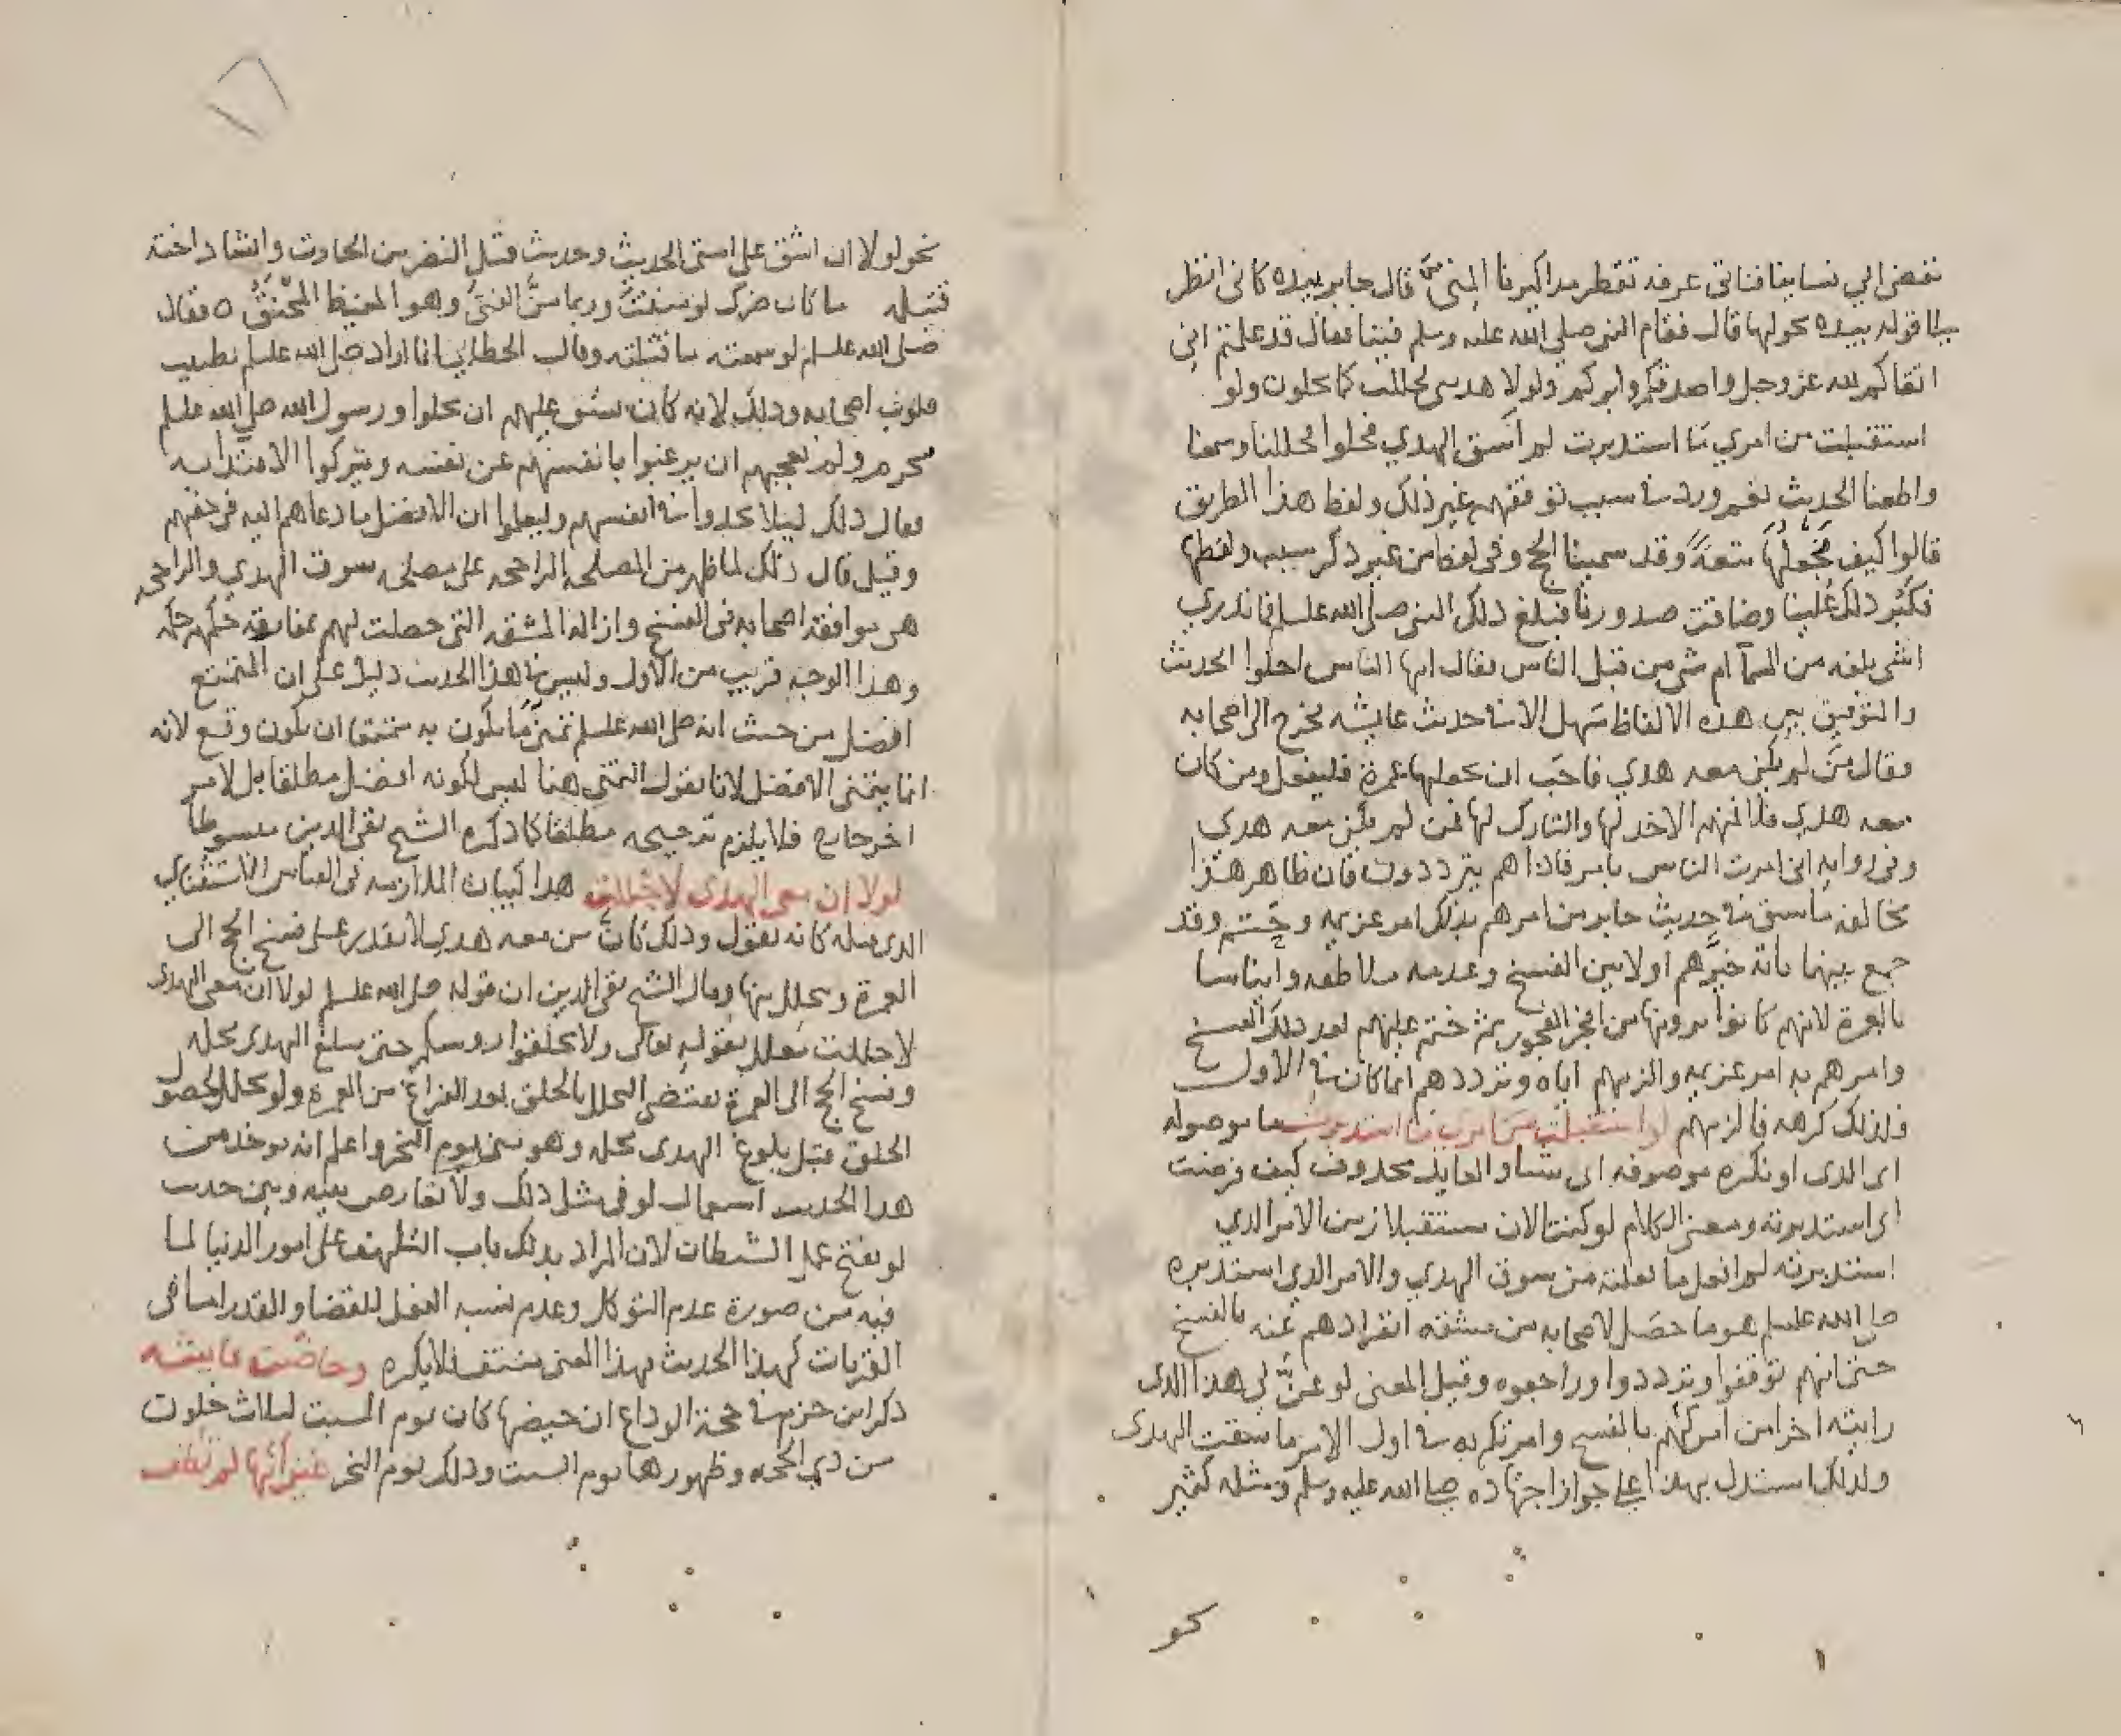 نفضي الي نساينا فناتي عرفه تقطر مذاكيرنا المني قال جابر بيده كاني انظر
الي قوله بيده يحولها قال فقام النبي صلي الله عليه وسلم فينا فقال قد علمتم اني
اتقاكم لله عز وجل واصدقكم وابركم ولولا هديي لحللت كما تحلون ولو
استقبلت من امري ما استدبرت لم اسق الهدي فحلوا فحللنا وسمعنا
واطعنا الحديث نعم ورد في سبب توقفهم غير ذلك ولفظ هذا الطريق
قالوا كيف نجعلها متعة وقد سمينا الحج وفي لفظ من غير ذكر سبب ولفظها
فكبر ذلك علينا وضاقت صدورنا فبلغ ذلك النبي صلي الله عليه وسلم فما ندري
اشي بلغه من السما ام شي من قبل الناس فقال ايها الناس احلوا الحديث
والتوفيق بين هذه الالفاظ سهل الا في حديث عايشه فخرج الي اصحابه
وقال من لم يكن معه هدي فاحب ان يجعلها عمرة فليفعل ومن كان
معه هدي فلا فمنهم الاخد لها والتارك لها فمن لم يكن معه هدي
وفي روايه اني امرت الناس بامر فاذا هم يترددون فان ظاهر هذا
مخالف ما سبق في حديث جابر من امرهم بذلك امر عزيمه وحتم وقد
جمع بينهما بانه خيرهم اولا بين الفسخ وعدمه ملاطفه وايناسا
بالعمرة لانهم كانوا يرونها من افجر الفجور ثم حتم عليهم بعد ذلك الفسخ
وامرهم به امر عزيمه والزمهم اياه وترددهم انما كان في الاول
فلذلك كرهه فالزمهم لو استقبلت من امري ما استدبرت ما موصوله
اي الذي او نكره موصوفه اي شيئا والعايد محذوف كيف فرضت
اي استدبرته ومعني الكلام لو كنت الان مستقبلا زمن الامر الذي
استدبرته لم افعل ما فعلته من سوق الهدي والامر الذي استدبره
صلي الله عليه وسلم هو ما حصل لاصحابه من مشقه انفرادهم عنه بالفسخ
حتي انهم توقفوا وترددوا وراجعوه وقيل المعني لو عن لي هذا الذي
رايته اخرا من امركم بالفسخ وامرتكم به في اول الامر ما سقت الهدي
ولذلك استدل بهذا علي جواز اجتهاده صلي الله عليه وسلم ومثله كثير
نحو
نحو لولا ان اشق علي امتي الحديث وحديث قتل النضر بن الحارث وانشاد اخته
قتيله ما كان ضرك لو مننت وربما من الفتي وهو المغيظ المحنق ه فقال
صلي الله عليه وسلم لو سمعته ما قتلته وقال الخطابي انما اراد صلي الله عليه وسلم تطييب
قلوب اصحابه وذلك لانه كان يشق عليهم ان يحلوا ورسول الله صلي الله عليه وسلم
محرم ولم يعجبهم ان يرغبوا بانفسهم عن نفسه ويتركوا الاقتدا به
فقال ذلك ليلا يجدوا في انفسهم وليعلموا ان الافضل ما دعاهم اليه في حقهم
وقيل قال ذلك لما ظهر من المصلحه الراجحه علي مصلحه سوق الهدي والراجحه
هي موافقه اصحابه في الفسخ وازاله المشقه التي حصلت لهم بمفارقه حكمهم حكمه
وهذا الوجه قريب من الاول وليس في هذا الحديث دليل علي ان التمتع
افضل من حيث انه صلي الله عليه وسلم تمني ما يكون به متمتعا ان يكون وقع لانه
انما يتمني الافضل لانا نقول التمني هنا ليس لكونه افضل مطلقا بل لامر
اخر خارج فلا يلزم ترجيحه مطلقا كما ذكره الشيخ تقي الدين مبسوطا
لولا ان معي الهدي لاحللت هذا لبيان الملازمه في القياس الاستثنائي
الذي قبله كانه يقول وذلك كان من معه هدي لا يقدر علي فسخ الحج الي
العمرة ويتحلل منها وقال الشيخ تقي الدين ان قوله صلي الله عليه وسلم لولا ان معي الهدي
لاحللت معلل بقوله تعالي ولا تحلقوا روسكم حتي يبلغ الهدي محله
وفسخ الحج الي العمرة يقتضي التحلل بالحلق بعد الفراغ من العمرة ولو تحلل لحصول
الحلق قبل بلوغ الهدي محله وهو بمني يوم النحر واعلم انه يوخذ من
هذا الحديث استعمال لو في مثل ذلك ولا تعارض بينه وبين حديث
لو تفتح عمل الشيطان لان المراد بذلك باب التلهف علي امور الدنيا لما
فيه من صورة عدم التوكل وعدم نسبه الفعل للقضا والقدر اما في
القربات كهذا الحديث فهذا المعني منتف فلا يكره وحاضت عايشه
ذكر ابن حزم في حجة الوداع ان حيضها كان يوم السبت لثلاث خلون
من ذي الحجه وطهورها يوم السبت وذلك يوم النحر غير انها لم تطف